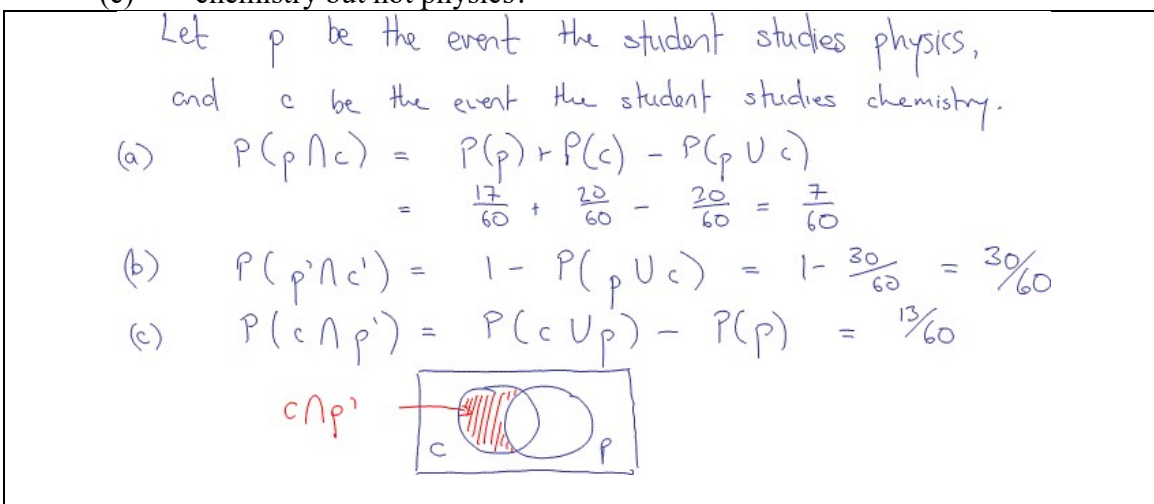 (c) chemistry but not physics?
Let p be the event the student studies physics,
and c be the event the student studies chemistry.
(a) P(p∩c) = P(p) + P(c) - P(p ∪ c)
= 17/60 + 20/60 - 20/60 = 7/60
(b) P(p'∩c') = 1 - P(p ∪ c) = 1 - 30/60 = 30/60
(c) P(c∩p') = P(c ∪ p) - P(p) = 13/60
c∩p'
c p